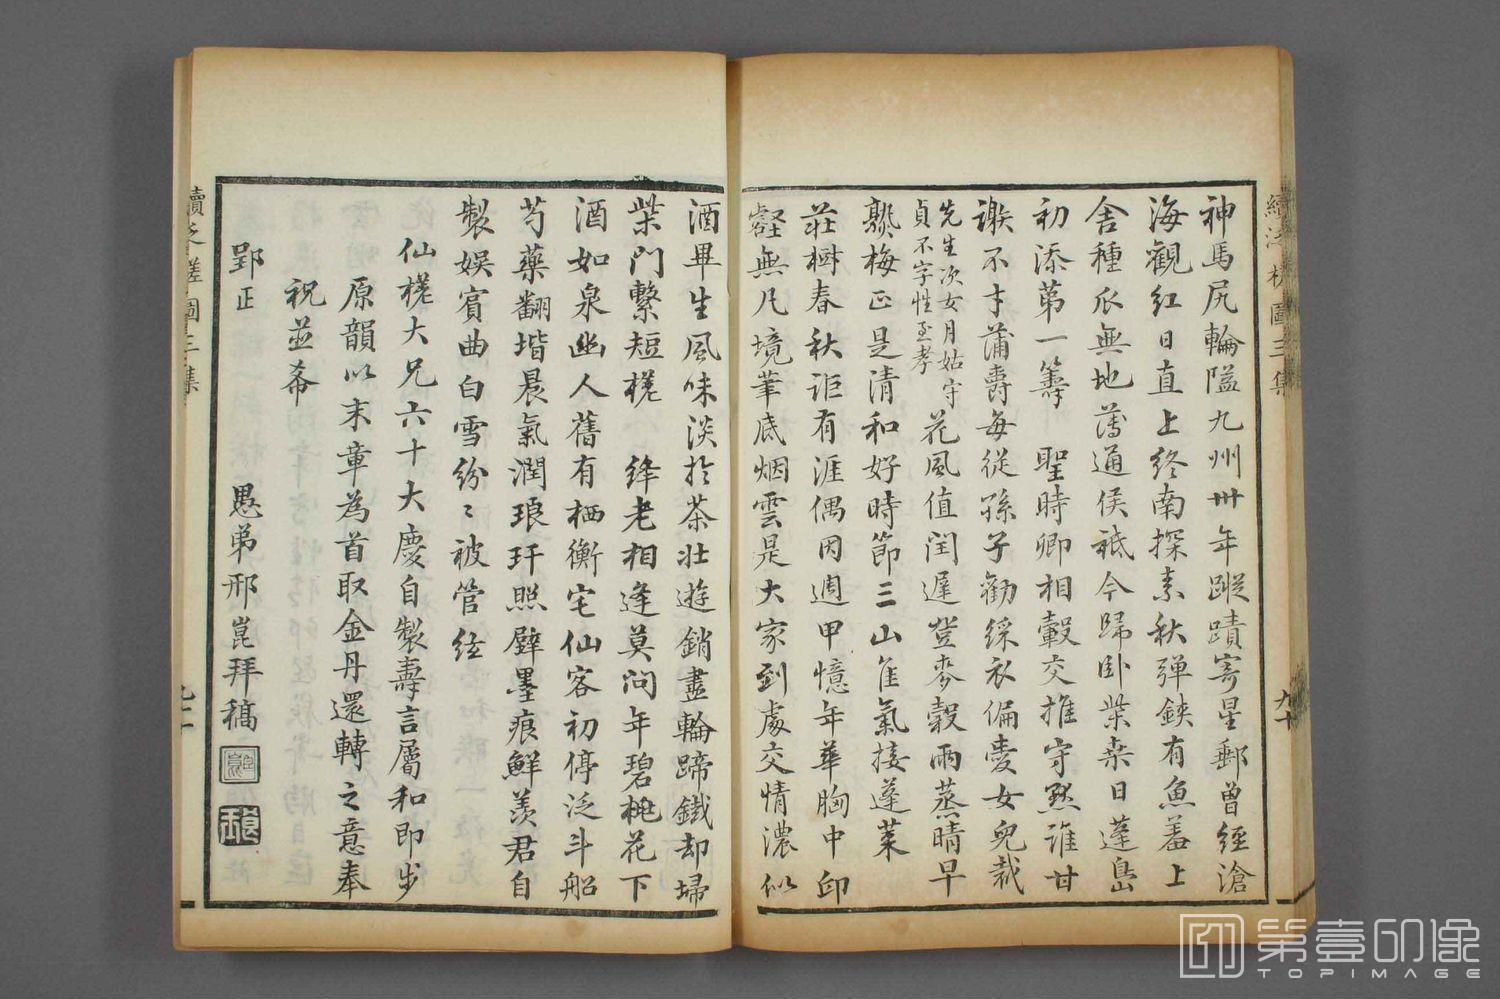 續泛槎圖三集
神馬尻輪隘九州卅年蹤蹟寄星郵曾經滄
海觀紅日直上終南探素秋彈鋏有魚羞上
舍種瓜無地薄通侯祗今歸卧柴桑日蓬島
初添第一籌　聖時卿相轂交推守黙誰甘
謝不才蒲爵每從孫子勸綵衣偏愛女兒裁
先生次女月姑守
貞不字性至孝
花風值閏遲登麥穀雨蒸晴早
熟梅正是清和好時節三山佳氣接蓬萊
莊樹春秋詎有涯偶因週甲憶年華胸中邱
壑無凡境筆底烟雲是大家到處交情濃似
九十
酒畢生風味淡於茶壯遊銷盡輪蹄鐵却埽
柴門繫短槎　絳老相逢莫問年碧桃花下
酒如泉幽人舊有栖衡宅仙客初停泛斗船
芍藥翻堦晨氣潤琅玕照壁墨痕鮮羨君自
製娛賓曲白雪紛〻被管絃
仙槎大兄六十大慶自製壽言屬和即步
原韻以末章為首取金丹還轉之意奉
祝並希
郢正　愚弟邢崑拜稿
續泛槎圖三集
第壹印像
TOPIMAGE